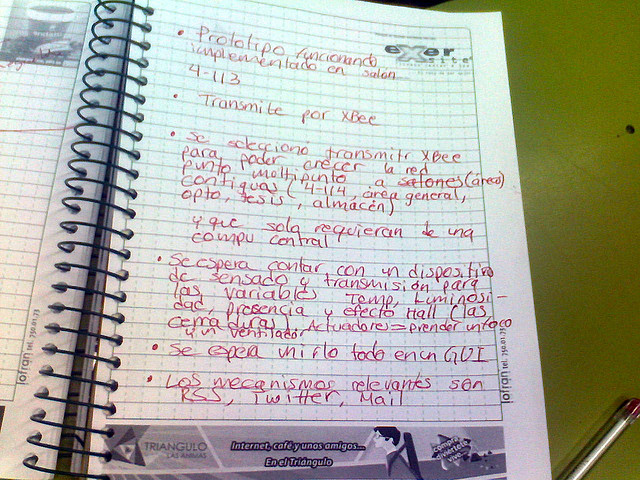 exer
site
• Prototipo funcionando
implementado en salón
4-113
• Transmite por XBee
• se selecciono transmitr XBee
para poder crecer la red
punto moltipunto a salones (áreas)
contiguas (4-114, área general,
opto, tesis, almacén)
y que solo requieran de una
compu central
• Se espera contar con un dispositivo
de sensado y transmisión para
las variables Temp, Luminosi-
dad, presencia y efecto Hall (las
cerraduras) Actuadores = prender un foco
y un ventilador
• Se espera unirlo todo en un GUI
• Los mecanismos relevantes son
RSS, Twitter, Mail
lofran tel. 750.01.73
lofran tel. 750.01.73
TRIANGULO
LAS ANIMAS
Internet, café y unos amigos...
En el Triángulo
compra
diviértete
vive